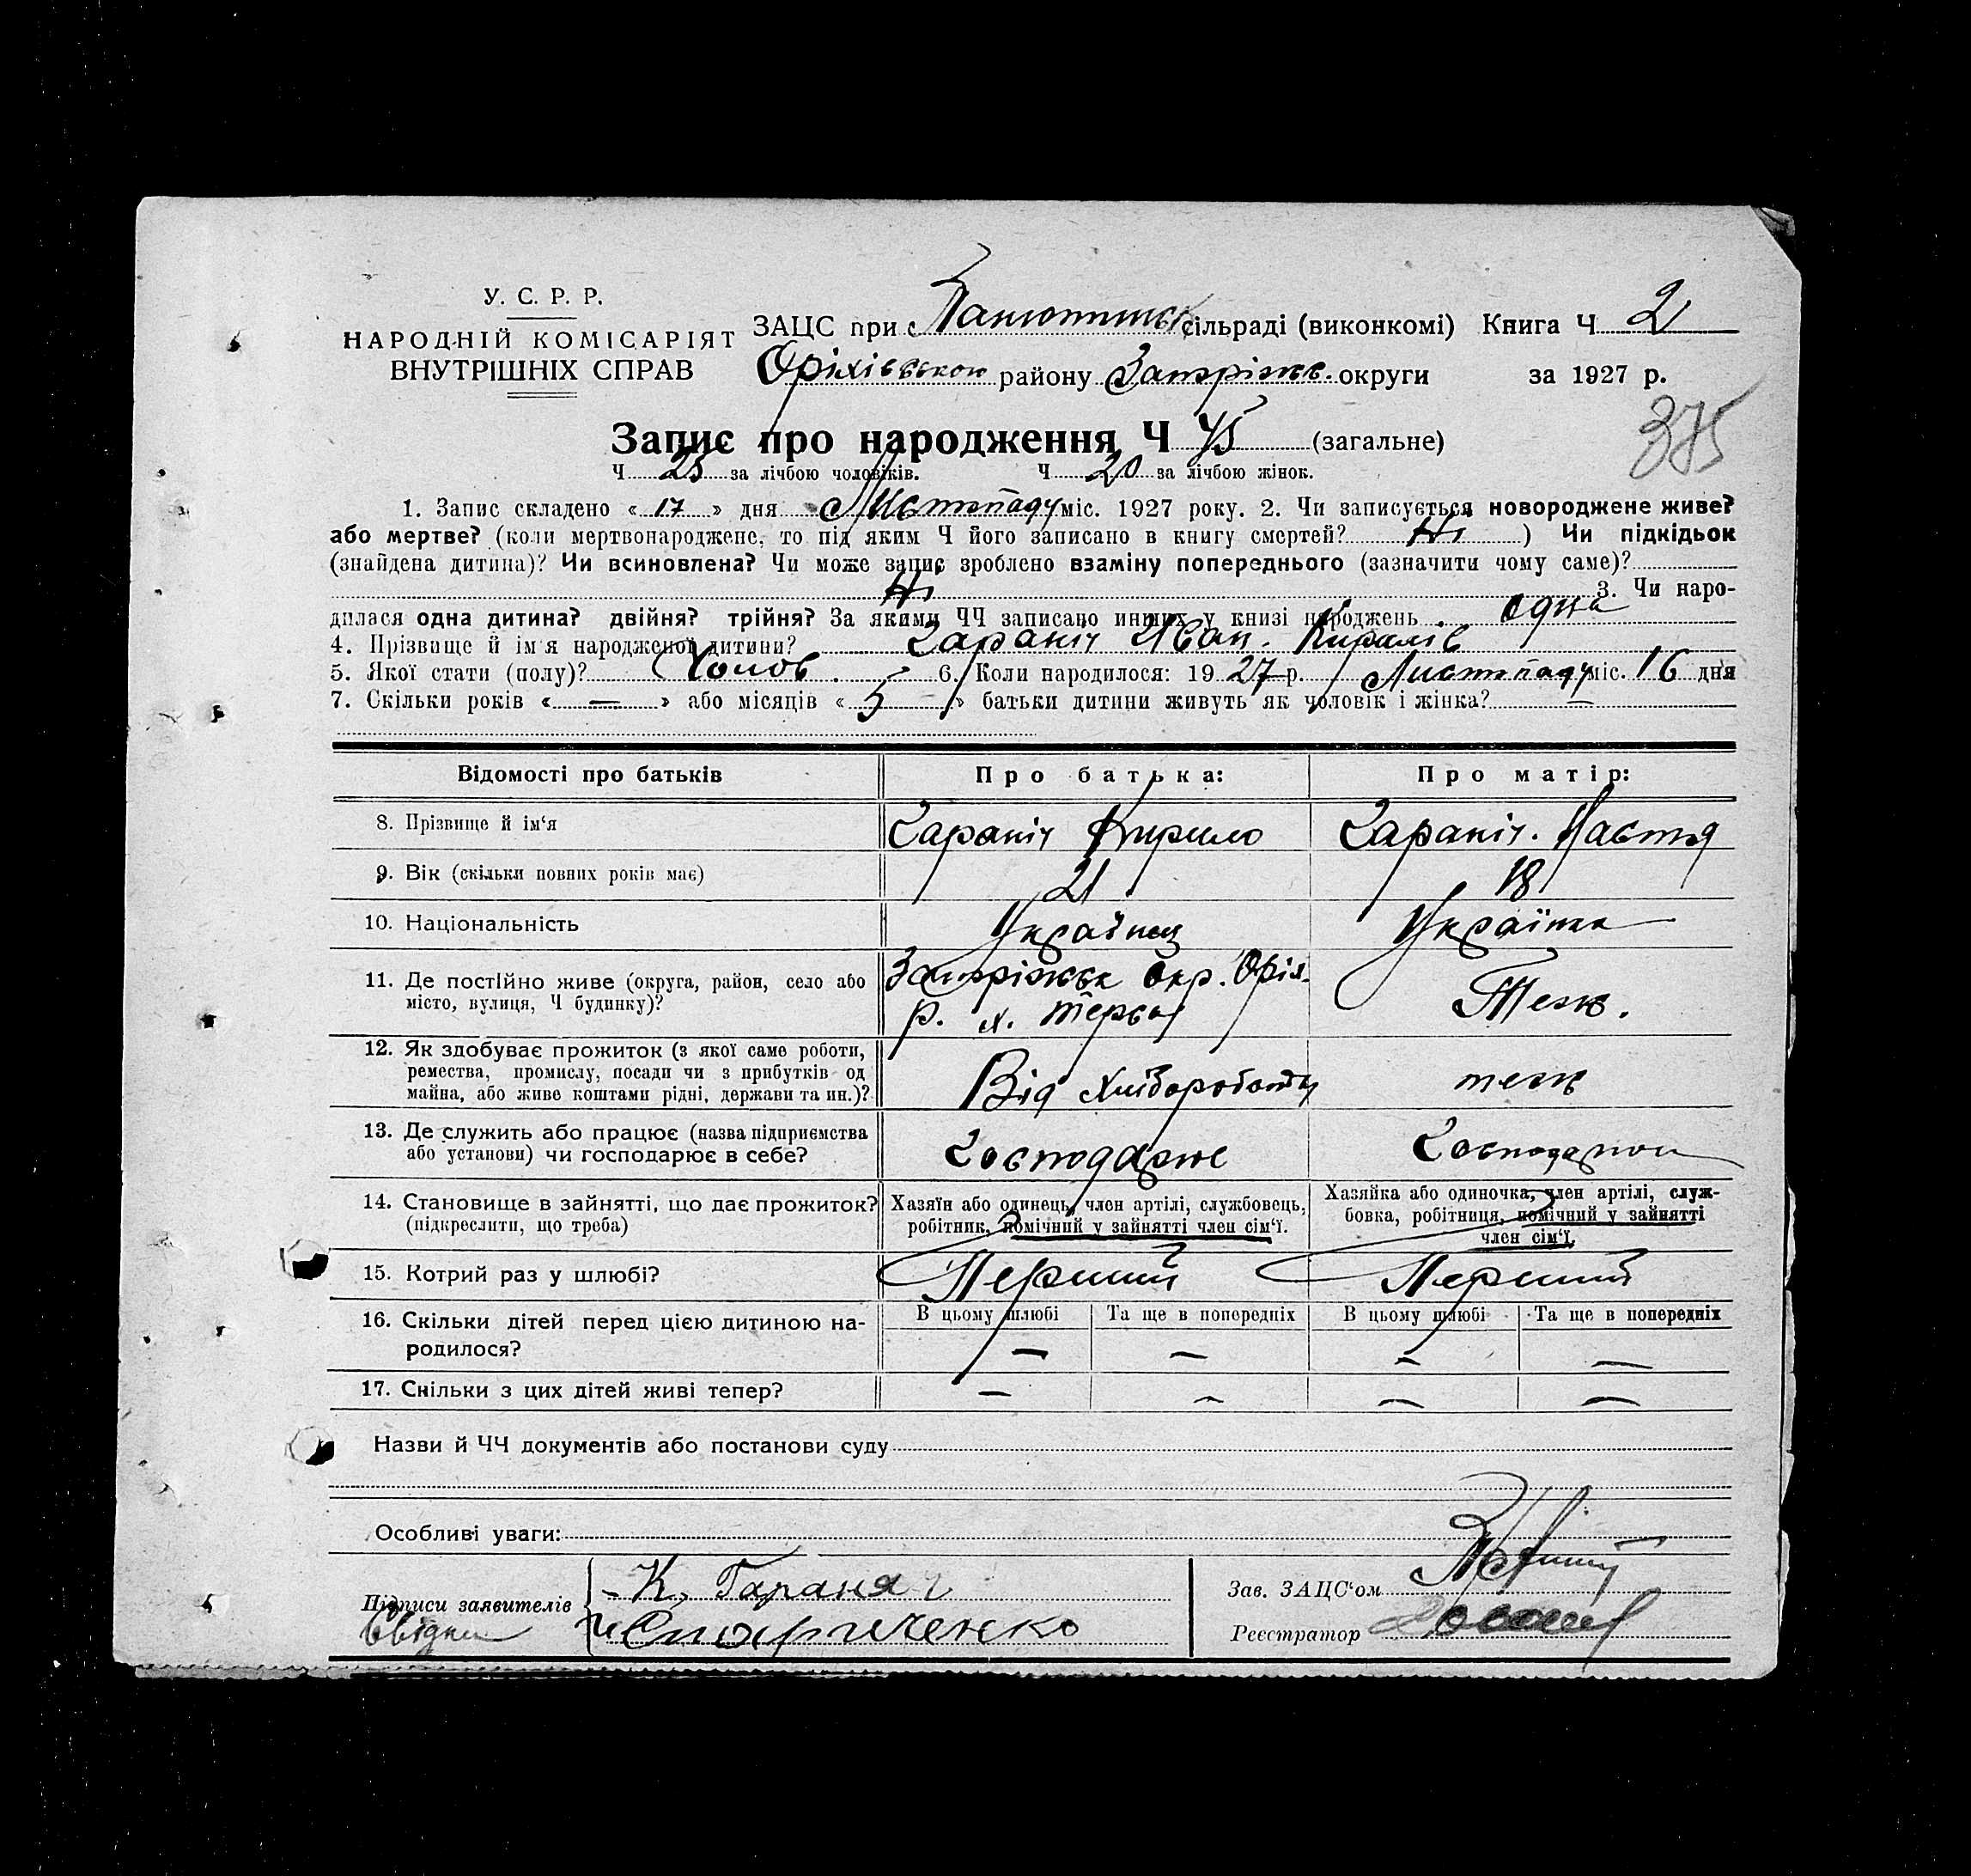 У. С. Р. Р.
НАРОДНІЙ КОМІСАРІЯТ
ВНУТРІШНІХ СПРАВ
ЗАЦС при с. Панютинск сільраді (виконкомі) Книга Ч 2
Оріхівською району Запоріжв. округи за 1927 р.
375
Запис про народження Ч 45 (загальне)
Ч 25 за лічбою чоловіків. Ч 20 за лічбою жінок.
1. Запис складено « 17 » дня Листопаду міс. 1927 року. 2. Чи записується новороджене живе?
або мертве? (коли мертвонароджене, то під яким Ч його записано в книгу смертей? Ні ) Чи підкідьок
(знайдена дитина)? Чи всиновлена? Чи може запис зроблено взаміну попереднього (зазначити чому саме)?
Ні 3. Чи наро-
дилася одна дитина? двійня? трійня? За якими ЧЧ записано инших у книзі народжень одна
4. Прізвище й ім'я народженої дитини? Гараніч Иван. Кирилів
5. Якої стати (полу)? Чолов. 6. Коли народилося: 1927 р. Листопаду міс. 16 дня
7. Скільки років « — » або місяців « 5 » батьки дитини живуть як чоловік і жінка? —
Відомості про батьків Про батька: Про матір:
8. Прізвище й ім'я Гараніч Кирило Гараніч. Настя
9. Вік (скільки повних років має) 21 18
10. Національність Українец Українка
11. Де постійно живе (округа, район, село або
місто, вулиця, Ч будинку)?
Запоріжськ Окр. Оріх.
р. х. Терса
Теж.
12. Як здобуває прожиток (з якої саме роботи,
ремества, промислу, посади чи з прибутків од
майна, або живе коштами рідні, держави та ин.)?
Від Хлібороботи теж
13. Де служить або працює (назва підприємства
або установи) чи господарює в себе?
Господарює
14. Становище в зайнятті, що дає прожиток?
(підкреслити, що треба)
Хазяїн або одинець, член артілі, службовець,
робітник, помічний у зайнятті член сім'ї.
Хазяйка або одиночка, член артілі, служ-
бовка, робітниця, помічний у зайнятті
член сім'ї.
15. Котрий раз у шлюбі? Перший Перший
16. Скільки дітей перед цією дитиною на-
родилося?
В цьому шлюбі Та ще в попередніх В цьому шлюбі Та ще в попередніх
— — — —
17. Скільки з цих дітей живі тепер? — — — —
Назви й ЧЧ документів або постанови суду
Особливі уваги:
Підписи заявителів К. Гаранч
Свідки Старченко
Зав. ЗАЦС'ом
Реєстратор